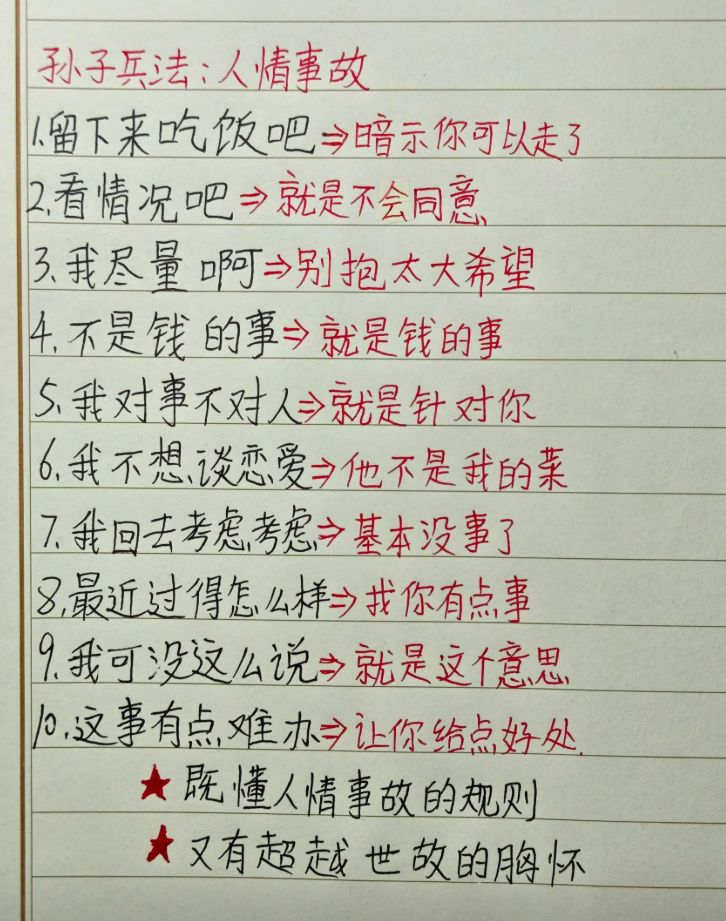 孙子兵法:人情事故
1.留下来吃饭吧⇒暗示你可以走了
2.看情况吧⇒就是不会同意
3.我尽量啊⇒别抱太大希望
4.不是钱的事⇒就是钱的事
5.我对事不对人⇒就是针对你
6.我不想谈恋爱⇒他不是我的菜
7.我回去考虑考虑⇒基本没事了
8.最近过得怎么样⇒找你有点事
9.我可没这么说⇒就是这个意思
10.这事有点难办⇒让你给点好处.
★既懂人情事故的规则
★又有超越世故的胸怀